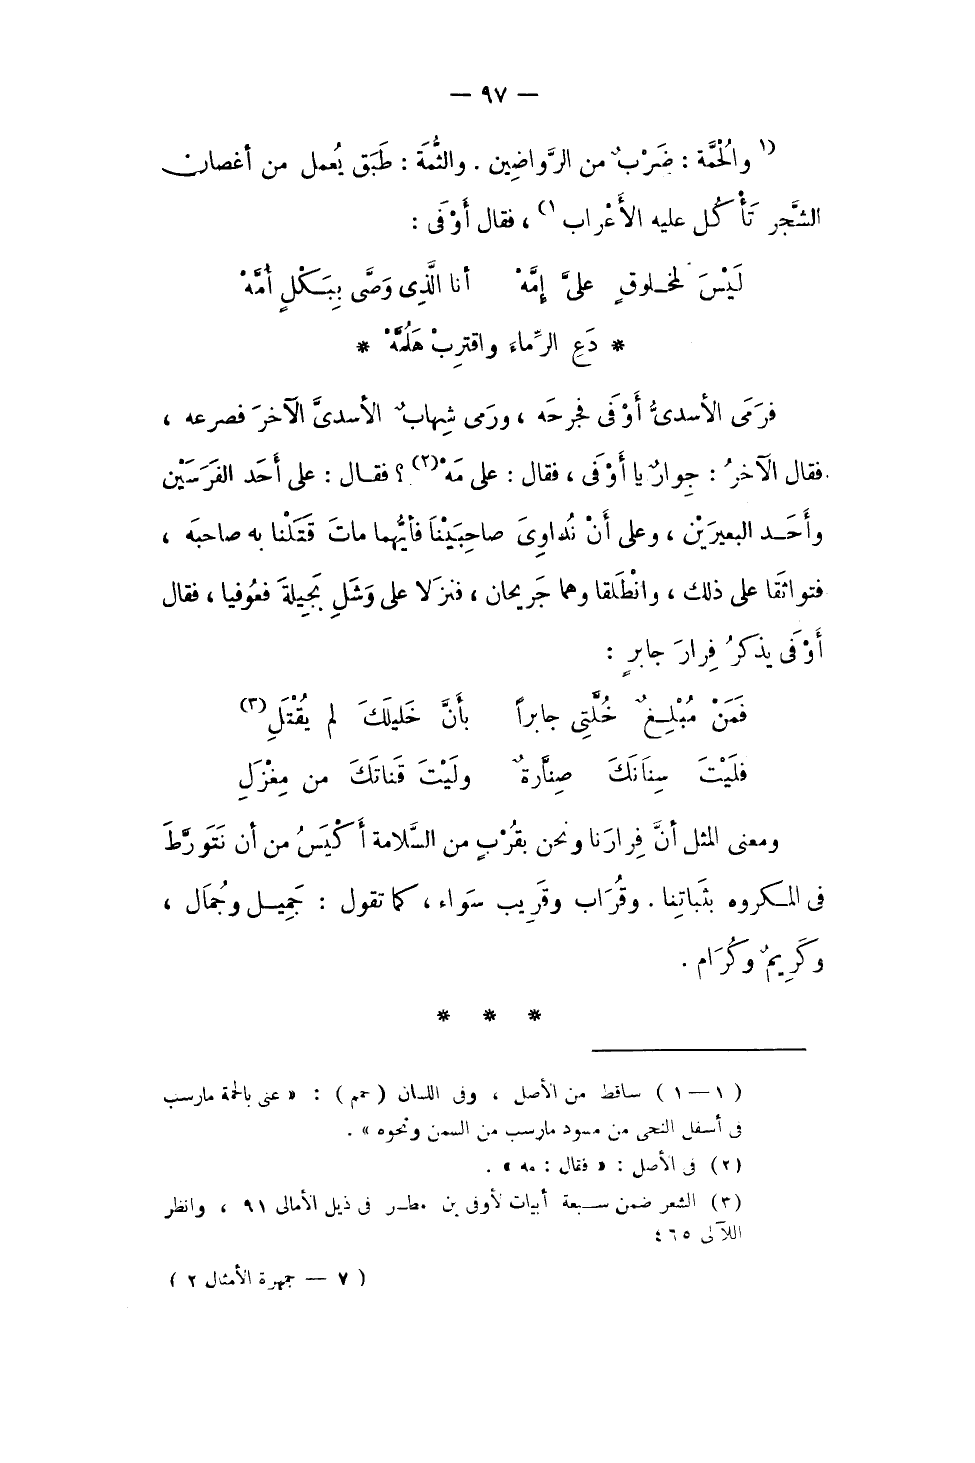 — ٩٧ —
(١ والحُمَّة : ضَرْبٌ من الرَّواضِين . والثُّمَة : طَبَق يُعمل من أغصان
الشَّجر تَأْكُل عليه الأَعْراب ١) ، فقال أَوْفَى :
لَيْسَ لمخلوقٍ علىَّ إِمَّهْ أنا الَّذِى وَصَّى بِبَكْلٍ أُمَّهْ
* دَعِ الرِّماءَ واقترِبْ هَلُمَّهْ *
فرَمَى الأسدىُّ أَوْفَى فجرحَه ، ورَمى شِهابٌ الأسدىَّ الآخرَ فصرعه ،
فقال الآخرُ : جِوارٌ يا أَوْفَى ، فقال : على مَهْ(٢) ؟ فقال : على أَحَد الفَرَسَيْن
وأَحَد البعيرَيْن ، وعلى أنْ نُداوِىَ صاحِبَيْنَا فأيُّهما ماتَ قَتَلْنا به صاحبَه ،
فتواثَقا على ذلك ، وانْطَلقا وهما جَرِيحان ، فنزَلا على وَشَلِ بَجِيلةَ فعُوفيا ، فقال
أَوْفَى يذكرُ فِرارَ جابرٍ :
فَمَنْ مُبْلِغٌ خُلَّتِى جابراً بأَنَّ خَلِيلَكَ لم يُقْتَلِ(٣)
فلَيْتَ سِنَانَكَ صِنَّارةٌ ولَيْتَ قَناتَكَ من مِغْزَلِ
ومعنى المثل أنَّ فِرارَنا ونحن بقُرْبٍ من السَّلامة أَكْيَسُ من أن نَتَوَرَّطَ
فى المكروه بثَباتِنا . وقُرَاب وقَرِيب سَواء ، كما تقول : جَمِيل وجُمَال ،
وكَرِيمٌ وكُرَام .
* * *
( ١ — ١ ) ساقط من الأصل ، وفى اللسان ( حمم ) : « عنى بالحمة مارسب
فى أسفل النحى من مسود مارسب من السمن ونحوه » .
(٢) فى الأصل : « فقال : مه » .
(٣) الشعر ضمن سبعة أبيات لأوفى بن مطر فى ذيل الأمالى ٩١ ، وانظر
اللآلى ٤٦٥
( ٧ — جمهرة الأمثال ٢ )